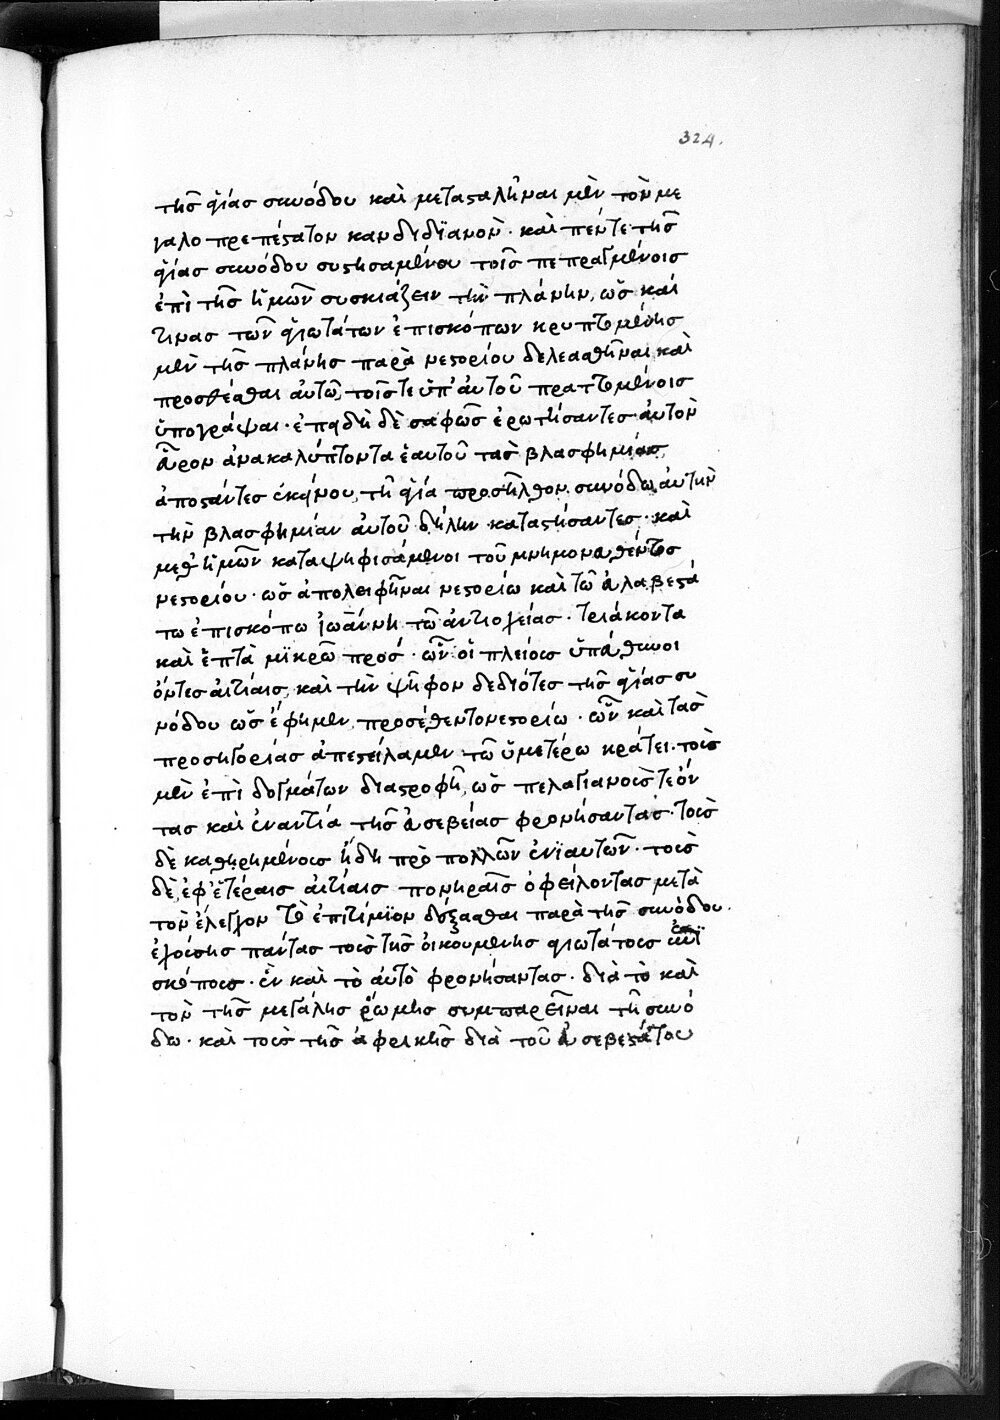 324.
τῆς ἁγίας συνόδου καὶ μετασταλῆναι μὲν τὸν με
γαλοπρεπέστατον κανδιδϊανὸν· καὶ πέντε τῆς
ἁγίας συνόδου συστησαμένου τοῖς πεπραγμένοις
ἐπὶ τῆς ἡμῶν συσκιάζειν τὴν πλάνην, ὡς καί
τινας τῶν ἁγιωτάτων ἐπισκόπων κρυπτομένης
μὲν τῆς πλάνης παρὰ νεστορίου δελεασθῆναι καὶ
προσθέσθαι αὐτῶ, τοῖς τε ὑπ' αὐτοῦ πραττομένοις
ὑπογράψαι· ἐπειδὴ δὲ σαφῶς ἐρωτήσαντες αὐτὸν
εὗρον ἀνακαλύπτοντα ἑαυτοῦ τὰς βλασφημίας,
ἀποστάντες ἐκείνου, τῆ ἁγία προσῆλθον συνόδω, αὐτὴν
τὴν βλασφημίαν αὐτοῦ δήλην καταστήσαντες· καὶ
μεθ' ἡμῶν καταψηφισάμενοι τοῦ μνημονευθέντος
νεστορίου· ὡς ἀπολειφῆναι νεστορίω καὶ τῶ εὐλαβεστά
τω ἐπισκόπω ἰωάννη τῶ ἀντιοχείας· τριάκοντα
καὶ ἑπτὰ μϊκρῶ πρός· ὧν οἱ πλείοις ὑπεύθυνοι
ὄντες αἰτίαις, καὶ τὴν ψῆφον δεδιότες τῆς ἁγίας συ
νόδου ὡς ἔφημεν, προσέθεντο νεστορίω· ὧν καὶ τὰς
προσηγορίας ἀπεστείλαμεν τῶ ὑμετέρω κράτει· τοὺς
μὲν ἐπὶ δογμάτων διαστροφῆ, ὡς πελαγιανοὺς τε ὄν
τας καὶ ἐναντία τῆς εὐσεβείας φρονήσαντας· τοὺς
δὲ καθηρημένους ἤδη πρὸ πολλῶν ἐνϊαυτῶν· τοὺς
δὲ, ἐφ' ἑτέραις αἰτίαις πονηραῖς ὀφείλοντας μετὰ
τὸν ἔλεγχον τὸ ἐπιτίμϊον δέξασθαι παρὰ τῆς συνόδου.
ἐχούσης πάντας τοὺς τῆς οἰκουμένης ἁγιωτάτους ἐπι
σκόπους· ἓν καὶ τὸ αὐτὸ φρονήσαντας· διὰ τὸ καὶ
τὸν τῆς μεγάλης ῥώμης συμπαρεῖναι τῆ συνό
δω· καὶ τοὺς τῆς ἀφρικῆς διὰ τοῦ εὐσεβεστάτου